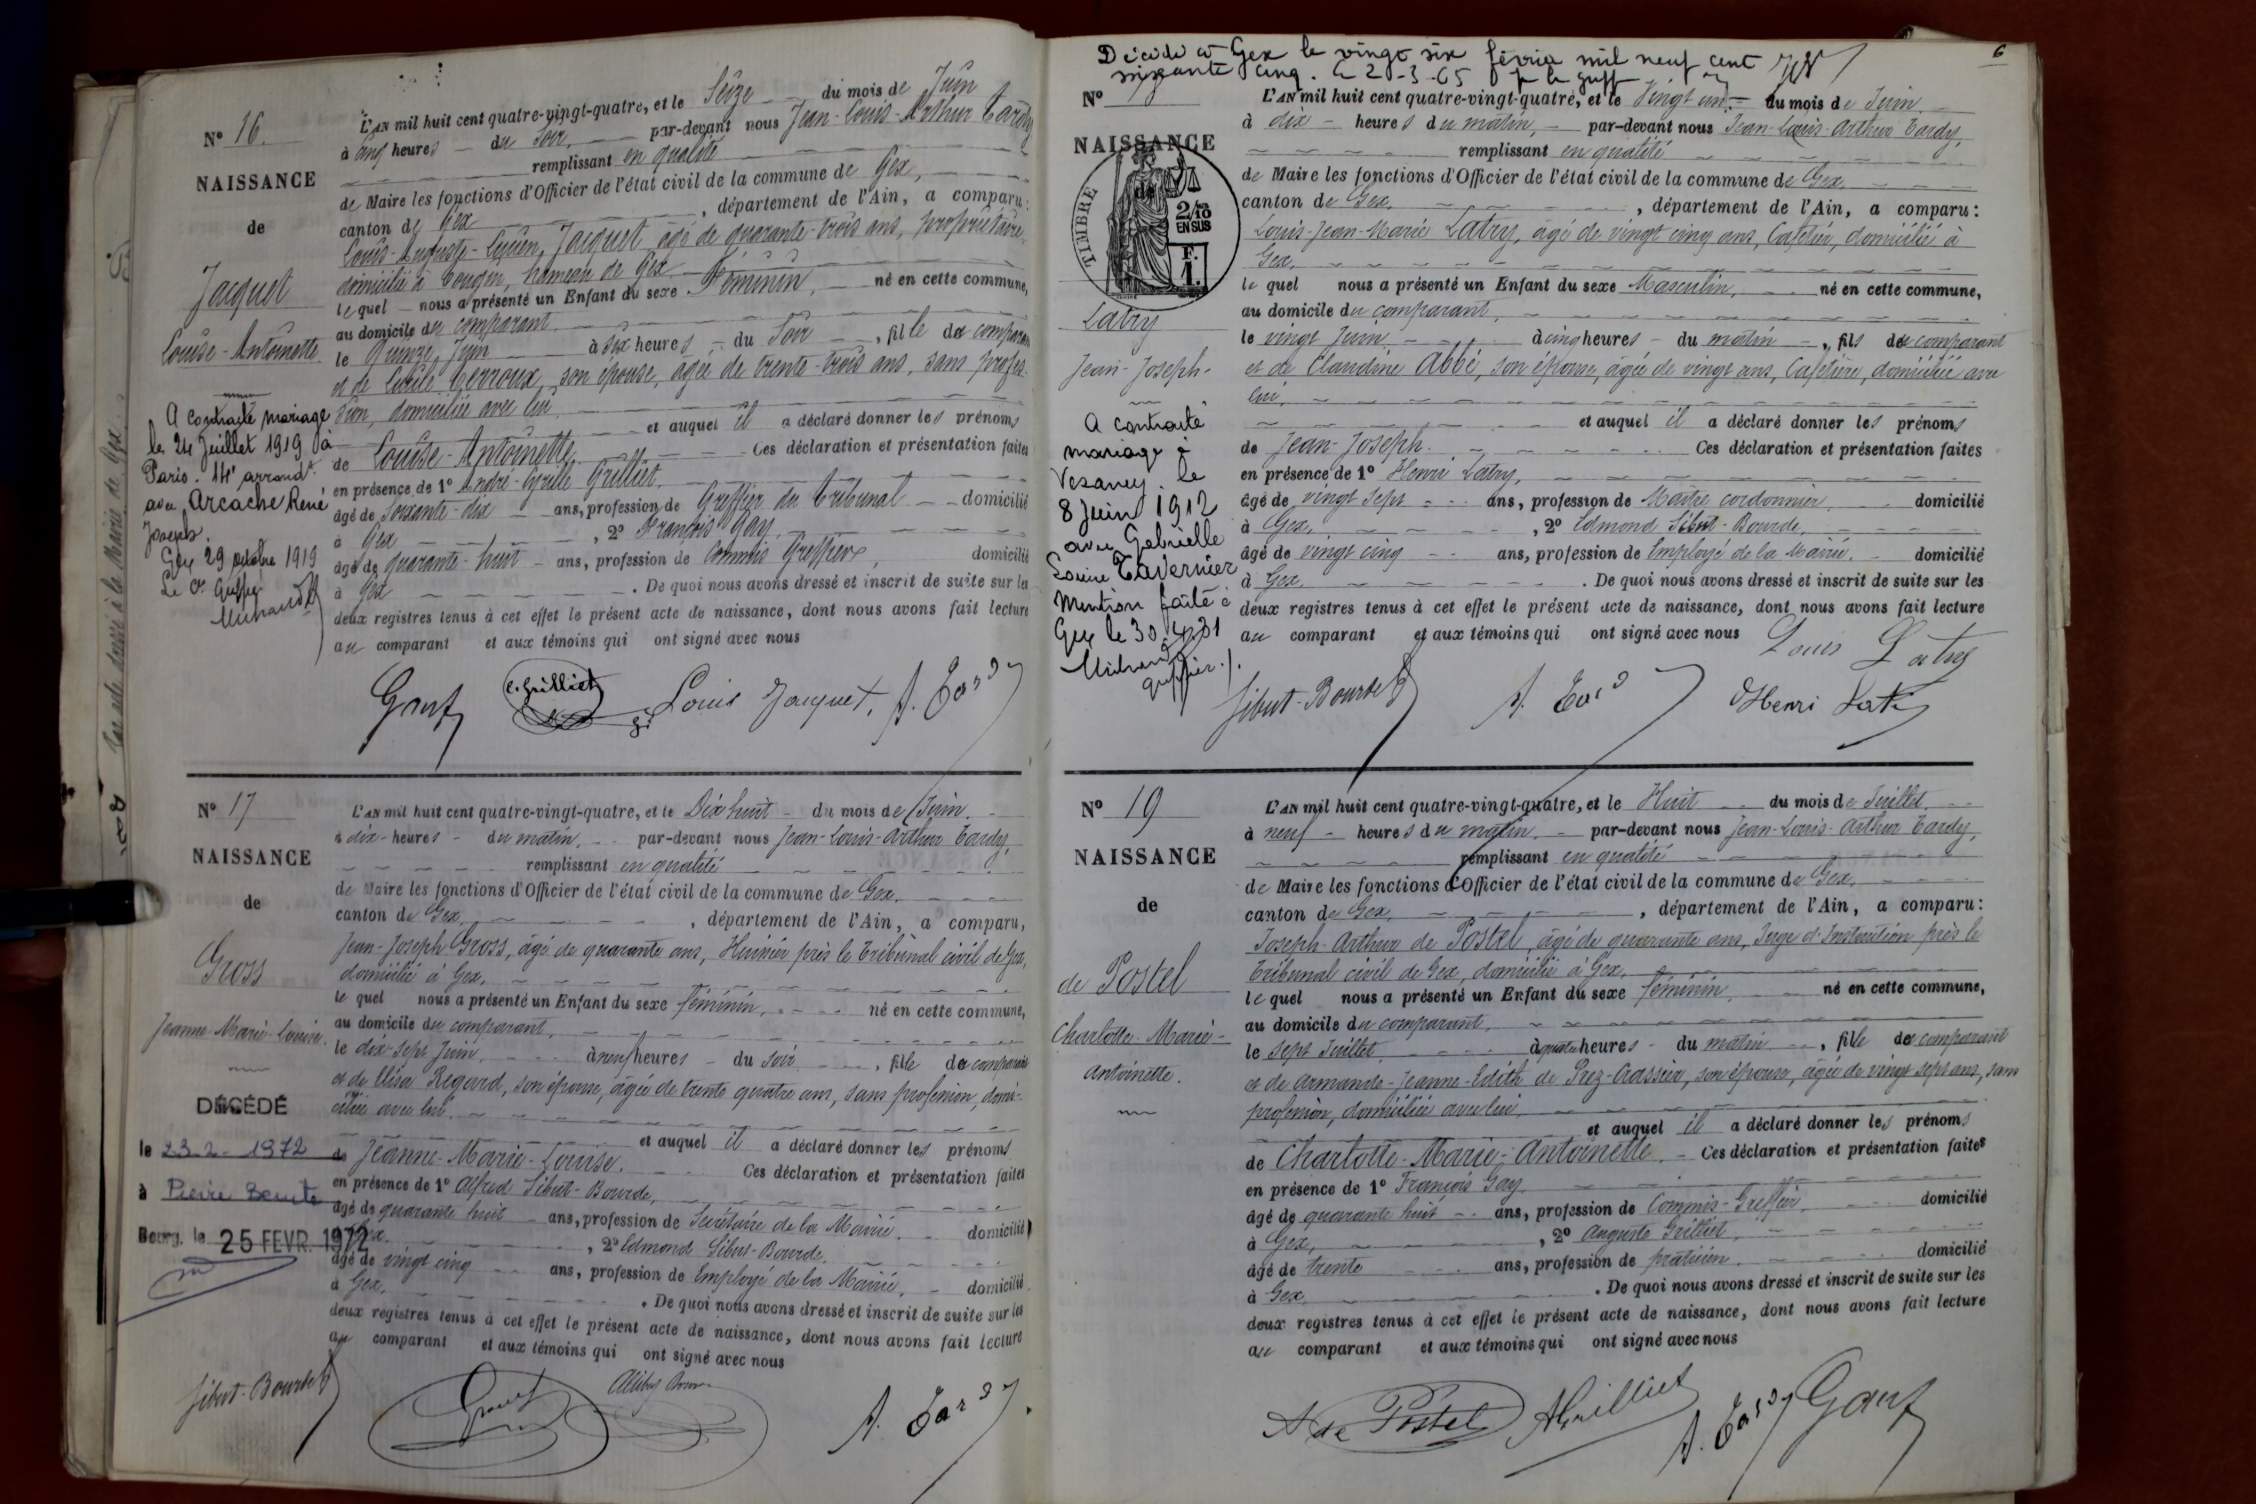 N° 16.
NAISSANCE
de
Jacquet
Louise-Antoinette
A contracté mariage
le 24 Juillet 1919 à
Paris. 14e arrondt.
avec Arcache René
Joseph.
Gex 29 octobre 1919
Le Cs Greffier
L'AN mil huit cent quatre-vingt-quatre, et le Seize du mois de Juin
à cinq heures du Soir, par-devant nous Jean-Louis-Arthur Tardy
remplissant en qualité
de Maire les fonctions d'Officier de l'état civil de la commune de Gex,
canton de Gex, département de l'Ain, a comparu:
Louis-Auguste-Lucien Jacquet, âgé de quarante-trois ans, propriétaire,
domicilié à Tougin, hameau de Gex
lequel nous a présenté un Enfant du sexe Féminin, né en cette commune,
au domicile du comparant
le Quinze Juin à six heures du Soir, fille du comparant
et de Cécile Perroux, son épouse, agée de trente-trois ans, sans profes-
sion, domiciliée avec lui.
et auquel il a déclaré donner les prénoms
de Louise-Antoinette. Ces déclaration et présentation faites
en présence de 1° André-Cyrille Grilliet.
âgé de Soixante-dix ans, profession de Greffier du Tribunal domicilié
à Gex, 2° François Gay,
âgé de quarante-huit ans, profession de Commis Greffier, domicilié
à Gex. De quoi nous avons dressé et inscrit de suite sur les
deux registres tenus à cet effet le présent acte de naissance, dont nous avons fait lecture
au comparant et aux témoins qui ont signé avec nous
C. Grilliet Louis Jacquet. A. Tardy
N° 17
NAISSANCE
de
Gross
Jeanne-Marie-Louise.
DÉCÉDÉ
le 23-2-1972
à Pierre Benite
Bourg, le 25 FEVR. 1972
L'AN mil huit cent quatre-vingt-quatre, et le Dix huit du mois de Juin.
à dix heures du matin, par-devant nous Jean-Louis-Arthur Tardy,
remplissant en qualité
de Maire les fonctions d'Officier de l'état civil de la commune de Gex.
canton de Gex, département de l'Ain, a comparu,
Jean-Joseph Gross, âgé de quarante ans, Huissier près le Tribunal civil de Gex,
domicilié à Gex,
lequel nous a présenté un Enfant du sexe féminin, né en cette commune,
au domicile du comparant,
le dix-sept Juin, à neuf heures du soir, fille du comparant
et de Elisa Regard, son épouse, âgée de trente quatre ans, sans profession, domi-
ciliée avec lui.
et auquel il a déclaré donner les prénoms
de Jeanne-Marie-Louise. Ces déclaration et présentation faites
en présence de 1° Alfred Sibut-Bourde,
âgé de quarante huit ans, profession de Secrétaire de la Mairie. domicilié
à Gex, 2° Edmond Sibut-Bourde.
âgé de vingt cinq ans, profession de Employé de la Mairie, domicilié
à Gex. De quoi nous avons dressé et inscrit de suite sur les
deux registres tenus à cet effet le présent acte de naissance, dont nous avons fait lecture
au comparant et aux témoins qui ont signé avec nous
Sibut-Bourde A. Tardy
6
Décédé à Gex le vingt six février mil neuf cent
soixante cinq. Le 2-3-65
N°
NAISSANCE
de
TIMBRE
2/10
EN SUS
F.
1.
Latry
Jean-Joseph
A contracté
mariage à
Vesancy le
8 Juin 1912
avec Gabrielle
Louise Tavernier
Mention faite à
Gex le 30.4.31
greffier
L'AN mil huit cent quatre-vingt-quatre, et le Vingt un du mois de Juin
à dix heures du matin, par-devant nous Jean-Louis-Arthur Tardy,
remplissant en qualité
de Maire les fonctions d'Officier de l'état civil de la commune de Gex
canton de Gex, département de l'Ain, a comparu:
Louis-Jean-Marie Latry, âgé de vingt cinq ans, Cafetier, domicilié à
Gex.
lequel nous a présenté un Enfant du sexe Masculin, né en cette commune,
au domicile du comparant,
le vingt Juin à cinq heures du matin, fils du comparant
et de Claudine Abbé, son épouse, âgée de vingt ans, Cafetière, domiciliée avec
lui,
et auquel il a déclaré donner les prénoms
de Jean-Joseph. Ces déclaration et présentation faites
en présence de 1° Henri Latry,
âgé de vingt sept ans, profession de Maître cordonnier, domicilié
à Gex, 2° Edmond Sibut-Bourde,
âgé de vingt cinq ans, profession de Employé de la Mairie. domicilié
à Gex. De quoi nous avons dressé et inscrit de suite sur les
deux registres tenus à cet effet le présent acte de naissance, dont nous avons fait lecture
au comparant et aux témoins qui ont signé avec nous Louis Latry
Sibut-Bourde A. Tardy Henri Latry
N° 19
NAISSANCE
de
de Postel
Charlotte-Marie-
Antoinette.
L'AN mil huit cent quatre-vingt-quatre, et le Huit du mois de Juillet
à neuf heures du matin, par-devant nous Jean-Louis-Arthur Tardy,
remplissant en qualité
de Maire les fonctions d'Officier de l'état civil de la commune de Gex,
canton de Gex, département de l'Ain, a comparu:
Joseph-Arthur de Postel, âgé de quarante ans, Juge d'Instruction près le
Tribunal civil de Gex, domicilié à Gex,
lequel nous a présenté un Enfant du sexe féminin, né en cette commune,
au domicile du comparant,
le sept Juillet, à quatre heures du matin, fille du comparant
et de Armande-Jeanne-Edith de Prez-Crassier, son épouse, âgée de vingt sept ans, sans
profession, domiciliée avec lui,
et auquel il a déclaré donner les prénoms
de Charlotte-Marie-Antoinette. Ces déclaration et présentation faites
en présence de 1° François Gay
âgé de quarante huit ans, profession de Commis-Greffier, domicilié
à Gex, 2° Auguste Grilliet,
âgé de trente ans, profession de praticien domicilié
à Gex. De quoi nous avons dressé et inscrit de suite sur les
deux registres tenus à cet effet le présent acte de naissance, dont nous avons fait lecture
au comparant et aux témoins qui ont signé avec nous
A de Postel AGrilliet A. Tardy